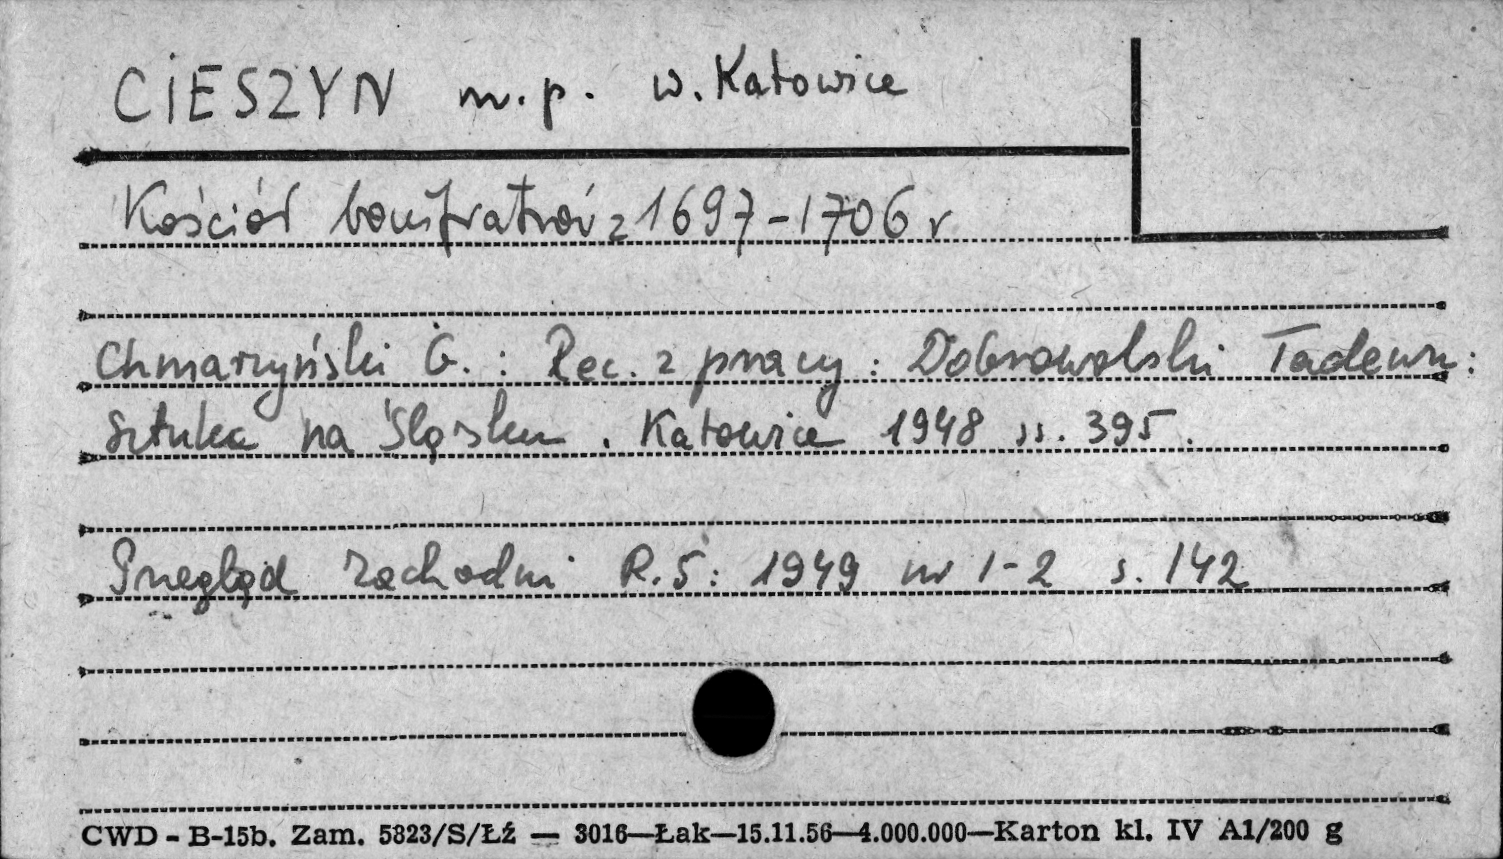 CIESZYN m.p. w. Katowice
Kościół bonifratrów z 1697-1706 r
Chmarzyński G. : Rec. z pracy : Dobrowolski Tadeusz :
Sztuka na Śląsku . Katowice 1948 ss. 395.
Przegląd Zachodni R.5: 1949 nr 1-2 s. 142
CWD - B-15b. Zam. 5823/S/Łź — 3016—Łak—15.11.56—4.000.000—Karton kl. IV A1/200 g